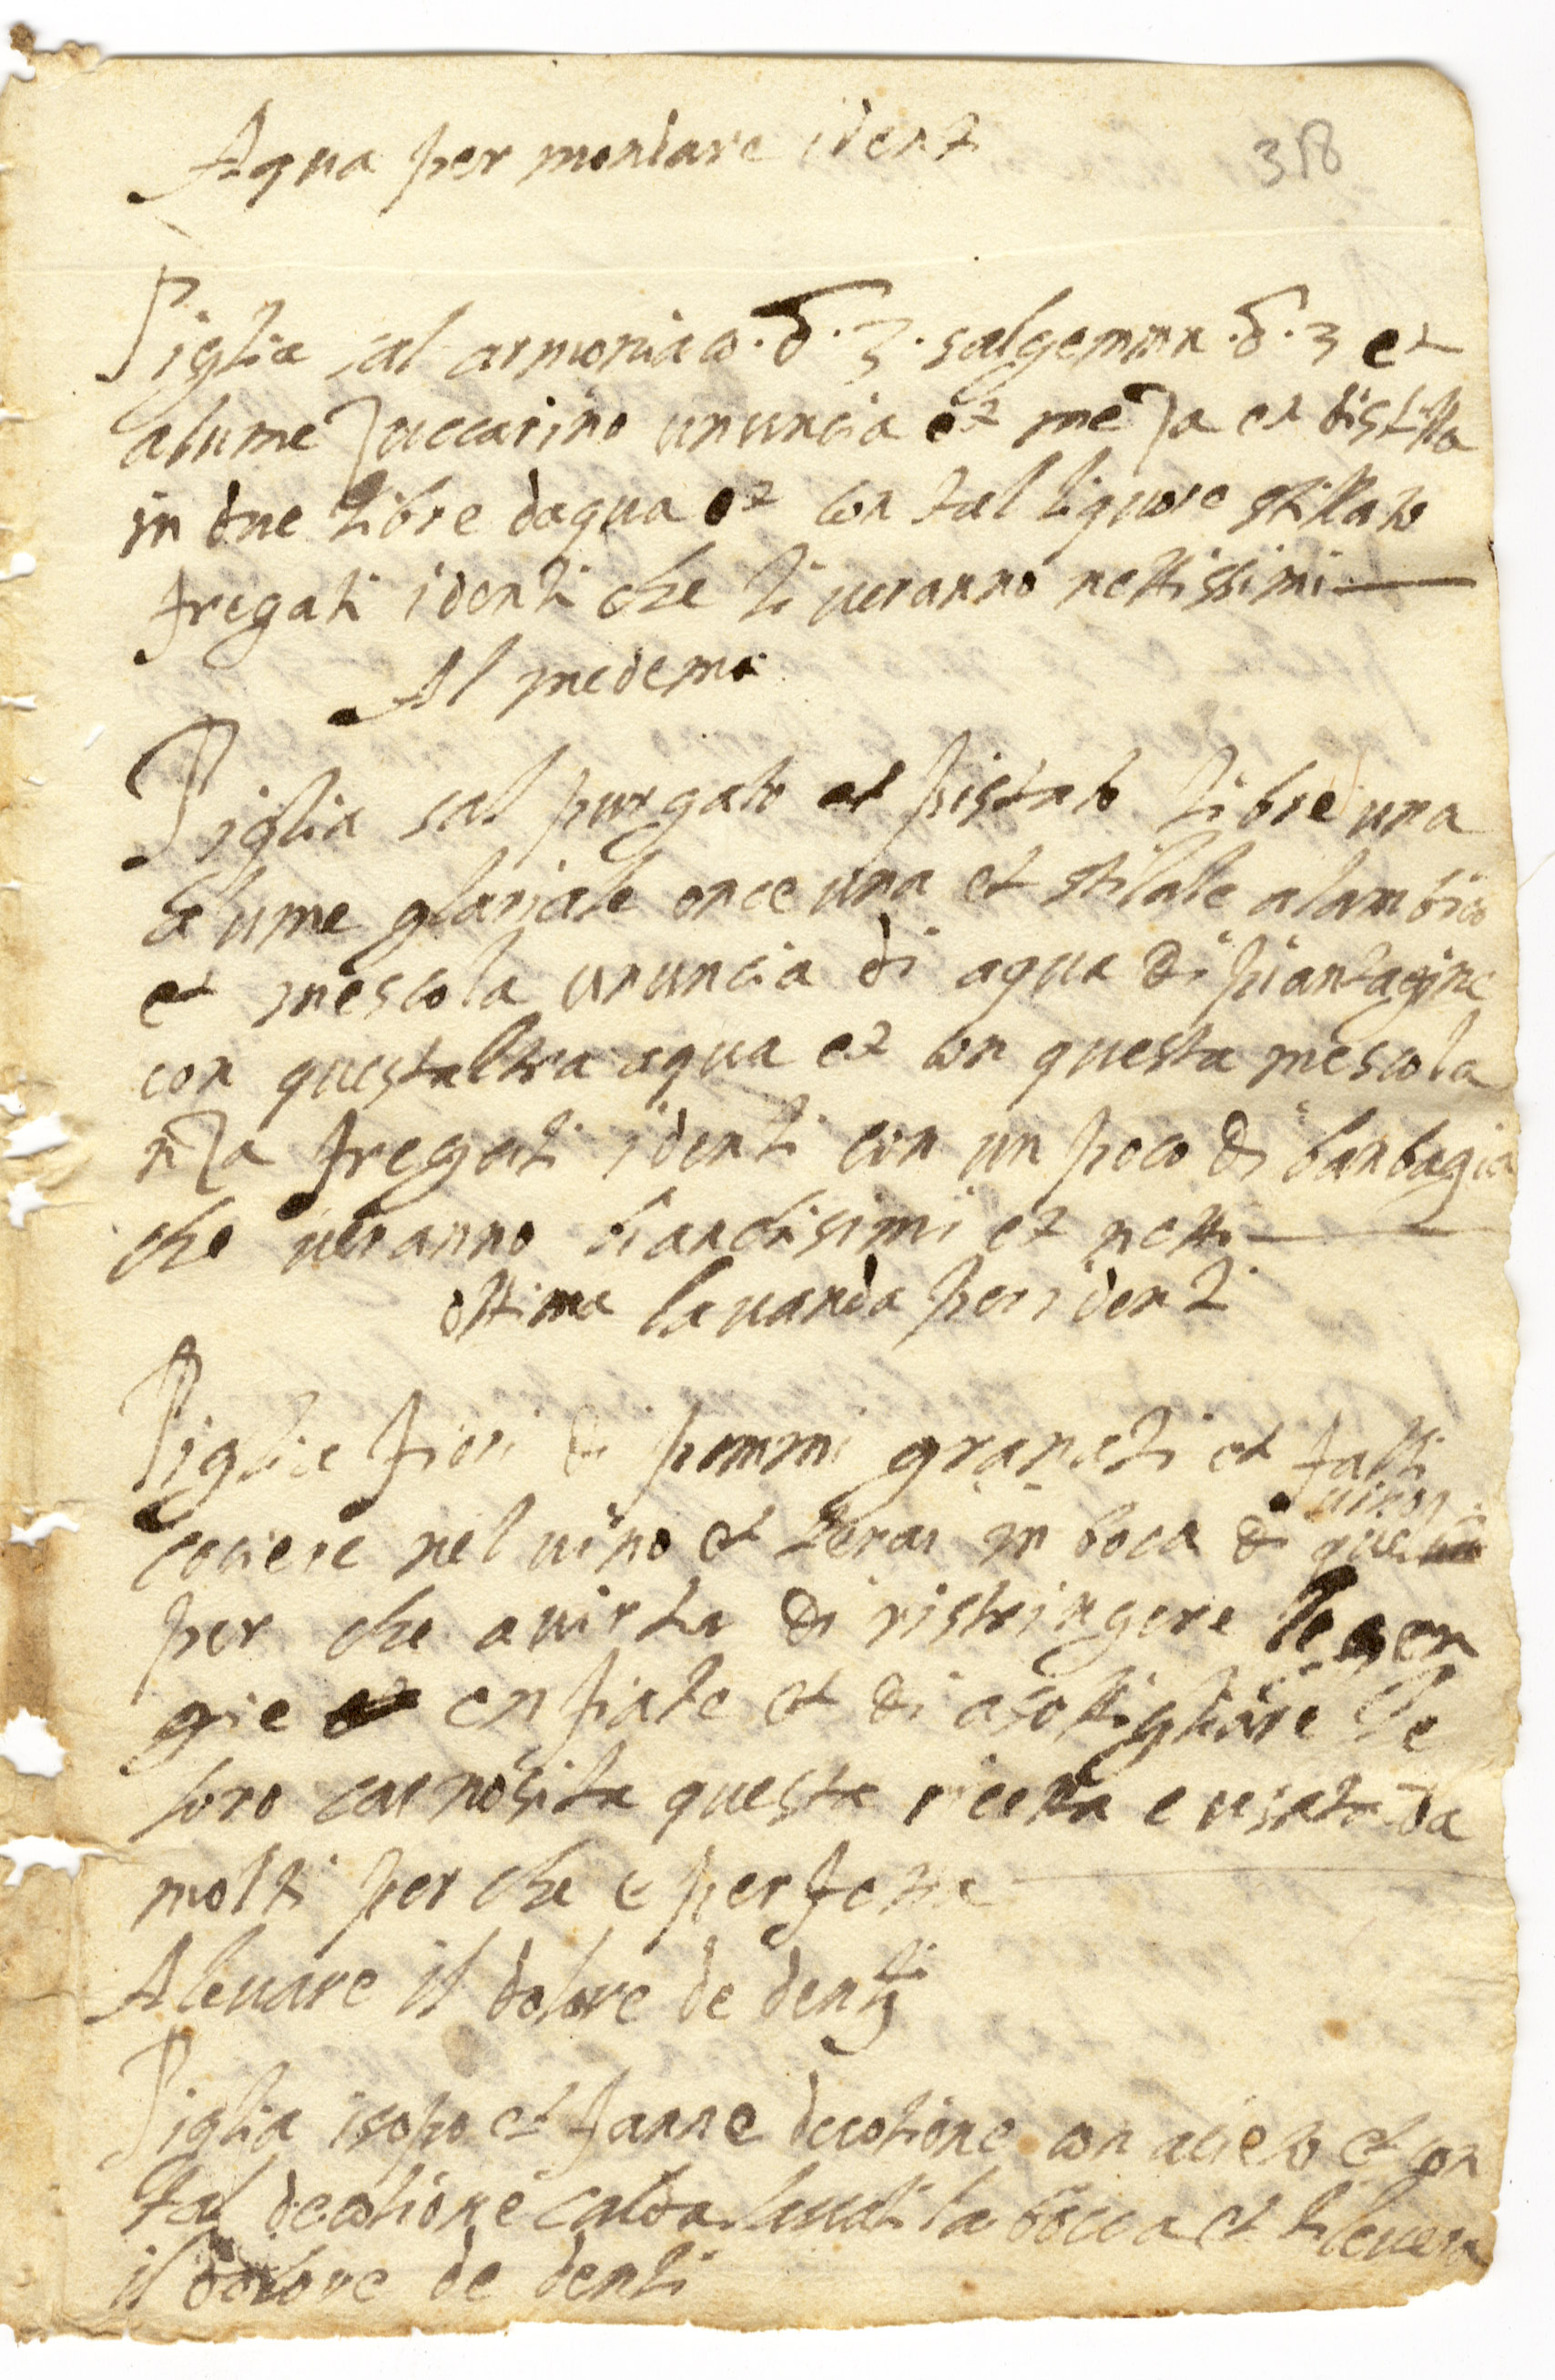 Aqua per mondare identi
318
Piglia sal armoniaco .δ. 3. salgemma .δ. 3 et
alume zuccarino ununcia et meza et distilla
in due libre daqua et con tal liquore stillato
fregati identi che ti veranno nettissimi
Al medemo
Piglia sal purgato et pistato libre una
alume glaciale once una et stilale alambico
et mescola ununcia di aqua di piantagine
con questaltra aqua et con questa mescola
nza fregati identi con un poco di banbagia
che veranno bianchisimi et netti
ottima lavanda per identi
Piglia fiori di pommi granati et falli
vino
cociere nel vino et terai in boca di quel
per che a virtu di ristringere le gen
gie enfiate et di asottigliare le
loro carnosita questa ricetta e usata da
molti per che e perfetta
A levare il dolore de denti
Piglia isopo et fanne decotione con acieto et con
tal decotione calda lavati la bocca et ti levera
il dolore de denti